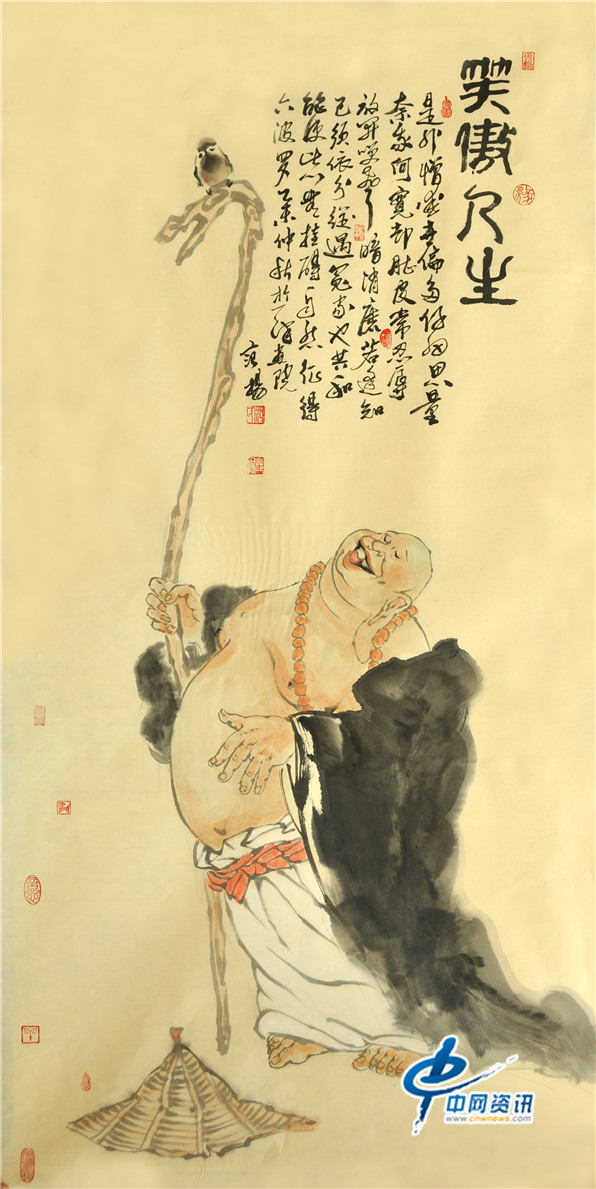 笑傲人生
是非憎愛世偏多仔细思量
奈我何寬却肚皮常忍辱
放開暗消磨若逢知
己须依分縱遇冤家也共和
能使此心無挂碍自然征得
六波罗仲秋於画院
中网资讯
www.cnwnews.com